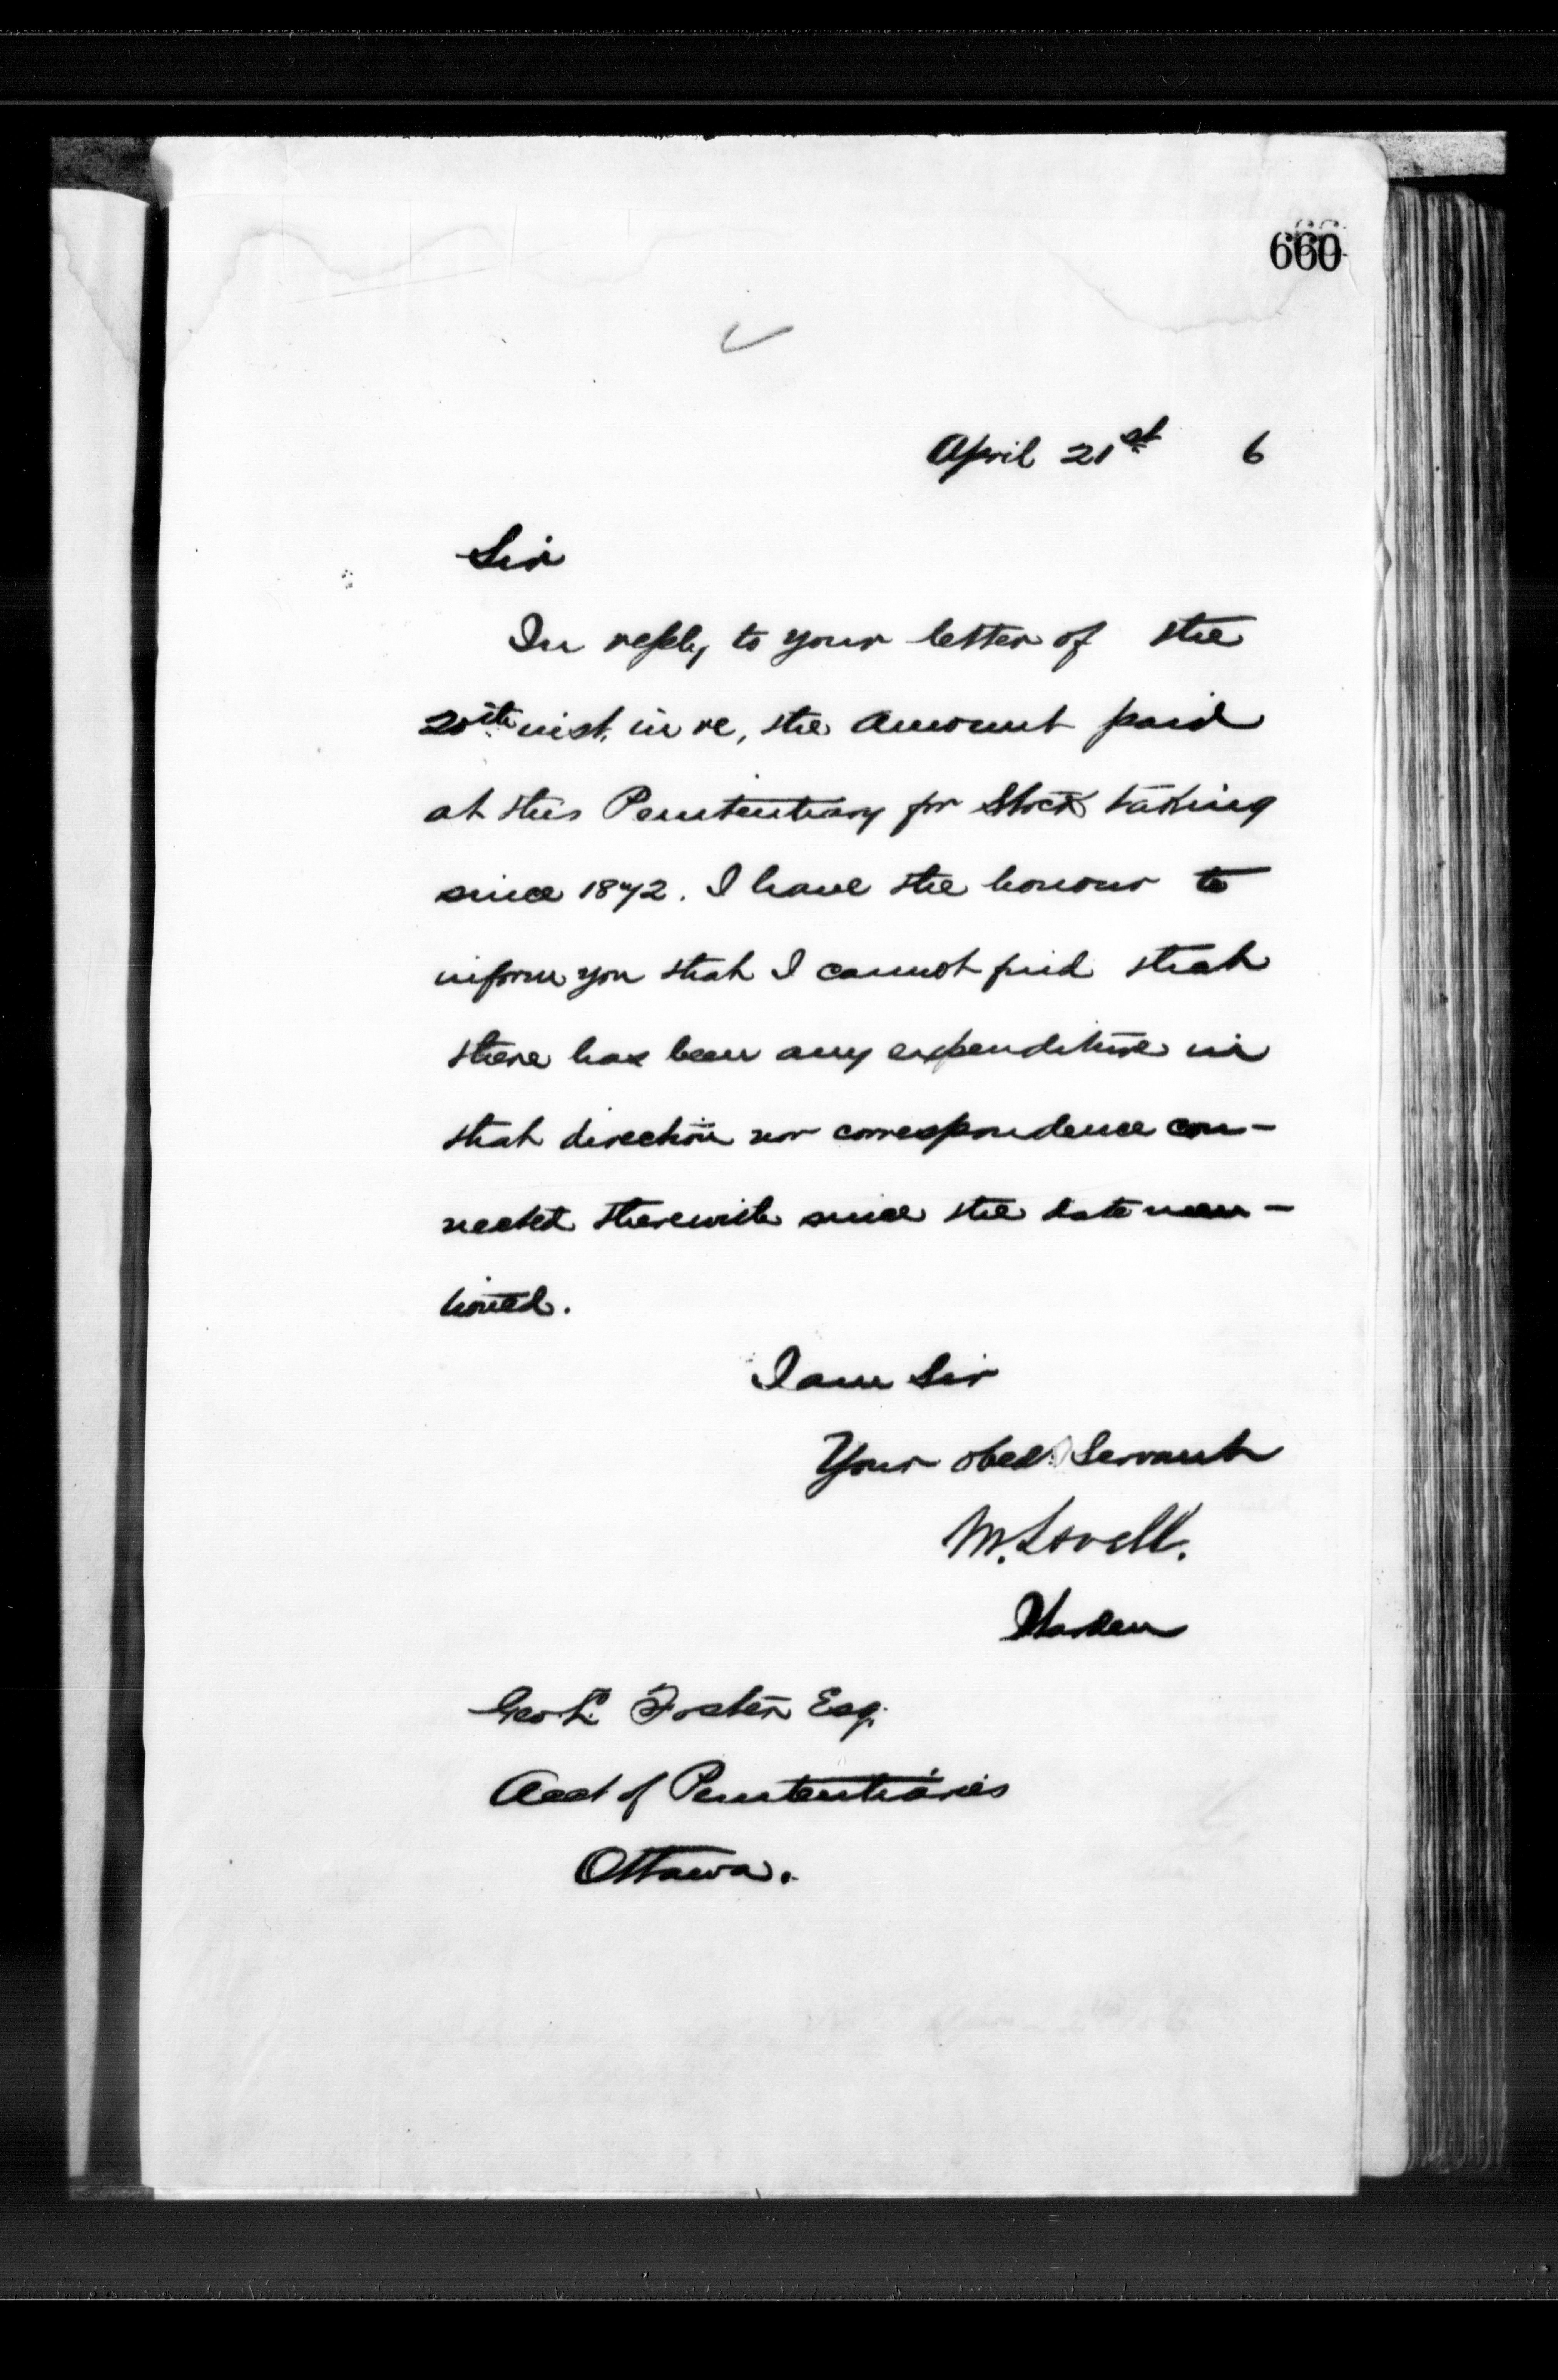 660
April 21st 6
Sir
In reply to your letter of the
20th inst. in re, the amount paid
at this Penitentiary for Stock taking
since 1872. I have the honour to
inform you that I cannot find that
there has been any expenditure in
that direction nor correspondence con-
nected therewith since the date men-
tioned.
I am Sir
Your obed. Servant
M. Lovell.
Warden
Geo L. Foster Esq.
Acct of Penitentiaries
Ottawa.